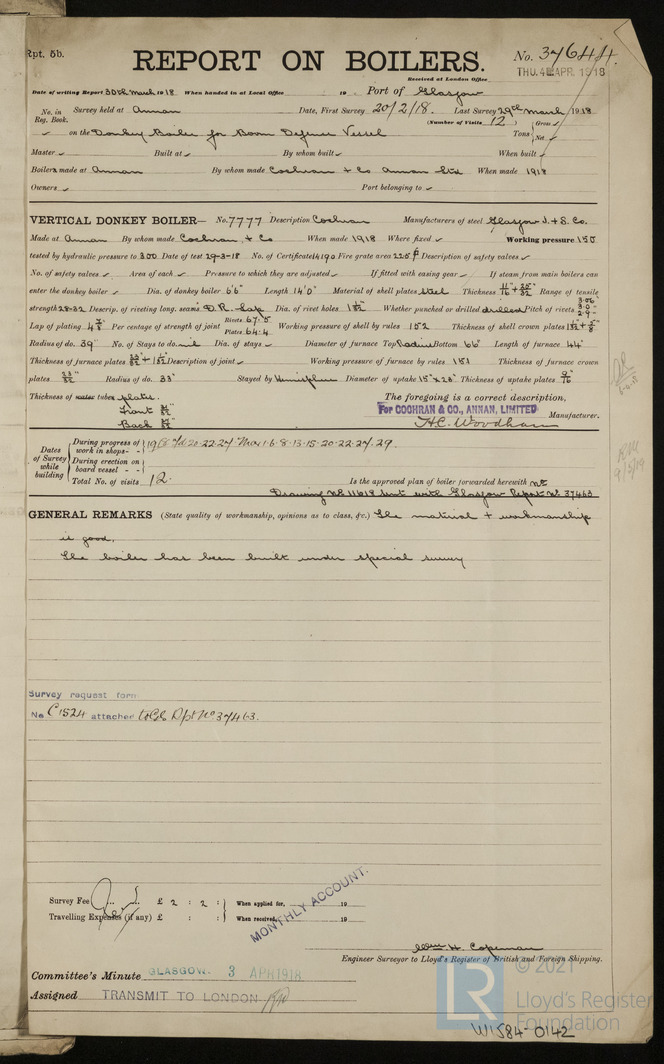 Rpt. 5b.
REPORT ON BOILERS.
No. 37644
Received at London Office THU. 4 APR. 1918
Date of writing Report 30th March 1918 When handed in at Local Office 19 . Port of Glasgow
No. in Reg. Book. Survey held at Annan Date, First Survey 20/2/18. Last Survey 29th March 1918
(Number of Visits 12 )
on the Donkey Boiler for Boom Defence Vessel Tons { Gross Net
Master Built at By whom built When built
Boilers made at Annan By whom made Cochran & Co Annan Ltd When made 1918
Owners Port belonging to
VERTICAL DONKEY BOILER— No. 7777 Description Cochran Manufacturers of steel Glasgow I. & S. Co.
Made at Annan By whom made Cochran & Co When made 1918 Where fixed Working pressure 150
tested by hydraulic pressure to 300 Date of test 29-3-18 No. of Certificate 14190 Fire grate area 22.5 Description of safety valves
No. of safety valves Area of each Pressure to which they are adjusted If fitted with easing gear If steam from main boilers can
enter the donkey boiler Dia. of donkey boiler 6'6" Length 14'0" Material of shell plates steel Thickness 11/16" + 25/32" Range of tensile
strength 28-32 Descrip. of riveting long. seams D.R. Lap Dia. of rivet holes 1 1/32" Whether punched or drilled drilled Pitch of rivets
Lap of plating Per centage of strength of joint Rivets 67.5 Plates 64.4 Working pressure of shell by rules 152 Thickness of shell crown plates
Radius of do. 39" No. of Stays to do. nil Dia. of stays Diameter of furnace Top Radius Bottom 66" Length of furnace 44"
Thickness of furnace plates Description of joint Working pressure of furnace by rules 151 Thickness of furnace crown
plates 23/32" Radius of do. 33" Stayed by Hemisphere Diameter of uptake 15" x 23" Thickness of uptake plates 9/16"
Thickness of water tubes plates.
Front
Back
The foregoing is a correct description,
For COCHRAN & CO., ANNAN, LIMITED
H.C. Woodham Manufacturer.
Dates of Survey while building
During progress of work in shops - - 1918 Feb 20-22-27 Mar 1-6-8-13-15-20-22-27-29
During erection on board vessel - -
Total No. of visits 12.
Is the approved plan of boiler forwarded herewith No
Drawing No 11618 sent with Glasgow Report No. 37463
GENERAL REMARKS (State quality of workmanship, opinions as to class, &c.) The material & workmanship
is good.
The boiler has been built under special survey
Survey request form
No C1524 attached to Gls Rpt No 37463.
Survey Fee £ 2 : 2 : When applied for, 19
Travelling Expenses (if any) £ : : When received, 19
MONTHLY ACCOUNT.
Wm H. Copeman
Engineer Surveyor to Lloyd's Register of British and Foreign Shipping.
Committee's Minute GLASGOW. 3 APR 1918
Assigned TRANSMIT TO LONDON
9/5/19
© 2021
Lloyd's Register
Foundation
LR
W1584-0142